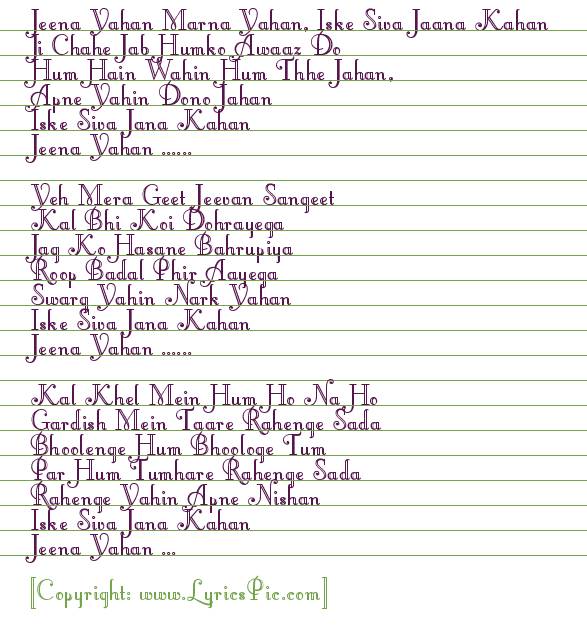 Jeena Yahan Marna Yahan, Iske Siva Jaana Kahan
Ji Chahe Jab Humko Awaaz Do
Hum Hain Wahin Hum Thhe Jahan,
Apne Yahin Dono Jahan
Iske Siva Jana Kahan
Jeena Yahan ......
Yeh Mera Geet Jeevan Sangeet
Kal Bhi Koi Dohrayega
Jag Ko Hasane Bahrupiya
Roop Badal Phir Aayega
Swarg Yahin Nark Yahan
Iske Siva Jana Kahan
Jeena Yahan ......
Kal Khel Mein Hum Ho Na Ho
Gardish Mein Taare Rahenge Sada
Bhoolenge Hum Bhoologe Tum
Par Hum Tumhare Rahenge Sada
Rahenge Yahin Apne Nishan
Iske Siva Jana Kahan
Jeena Yahan ...
[Copyright: www.LyricsPic.com]